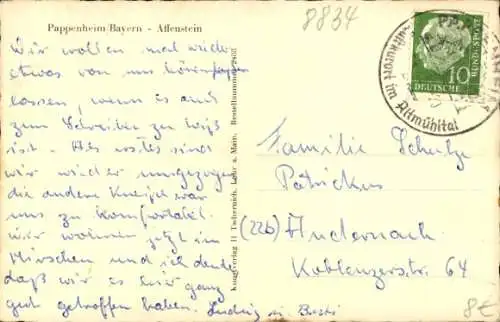 Pappenheim/Bayern - Affenstein
8834
Wir wollen mal wieder
etwas von uns hören
lassen, wenn es auch
zum Schreiben zu heiß
ist. Als erstes sind
wir wieder umgezogen
die andere Kneipe war
uns zu komfortabel.
Wir wohnen jetzt im
Hirschen und ich denke
daß wir es hier ganz
gut getroffen haben.
Kunstverlag H Tschernich, Lohr a. Main. Bestellnummer
10
DEUTSCHE BUNDESPOST
Luftkurort im
Altmühltal
Familie Schulze
Patrickus
(22b) Andernach
Koblenzerstr. 64
8€